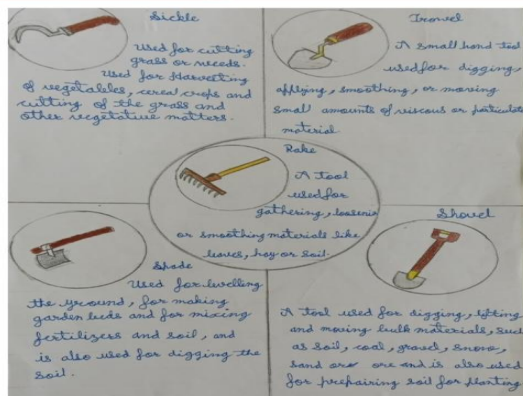 Sickle
Used for cutting
grass or weeds.
Used for Harvesting
of vegetables, cereal crops and
cutting of the grass and
other vegetative matters.
Trowel
A small hand tool
used for digging,
applying, smoothing, or moving
small amounts of viscous or particular
material
Rake
A tool
used for
gathering, loosenin
or smoothing materials like
leaves, hay or soil.
Spade
Used for levelling
the ground, for making
garden beds and for mixing
fertilizers and soil, and
is also used for digging the
soil.
Shovel
A tool used for digging, lifting
and moving bulk materials, such
as soil, coal, gravel, snow,
sand or ore and is also used
for prepairing soil for planting